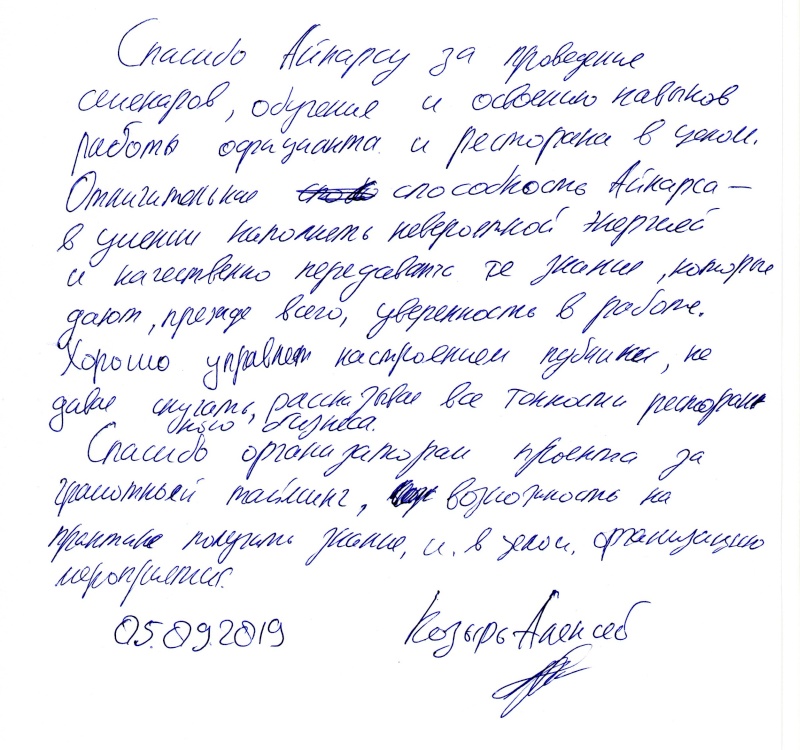 Спасибо Айнарсу за проведение
семенаров, обучения и освоению навыков
работы официанта и ресторана в целом.
Отличительная способность Айнарса —
в умении наполнять невероятной энергией
и качественно передавать те знание, которые
дают, прежде всего, уверенность в работе.
Хорошо управляет настроением публики, не
давая скучать, рассказывая все тонкости ресторан
ного бизнеса.
Спасибо организаторам проекта за
грамотный тайминг, возможность на
практике получить знание, и, в целом, организацию
мероприятия.
05.09.2019 Козырь Алексей